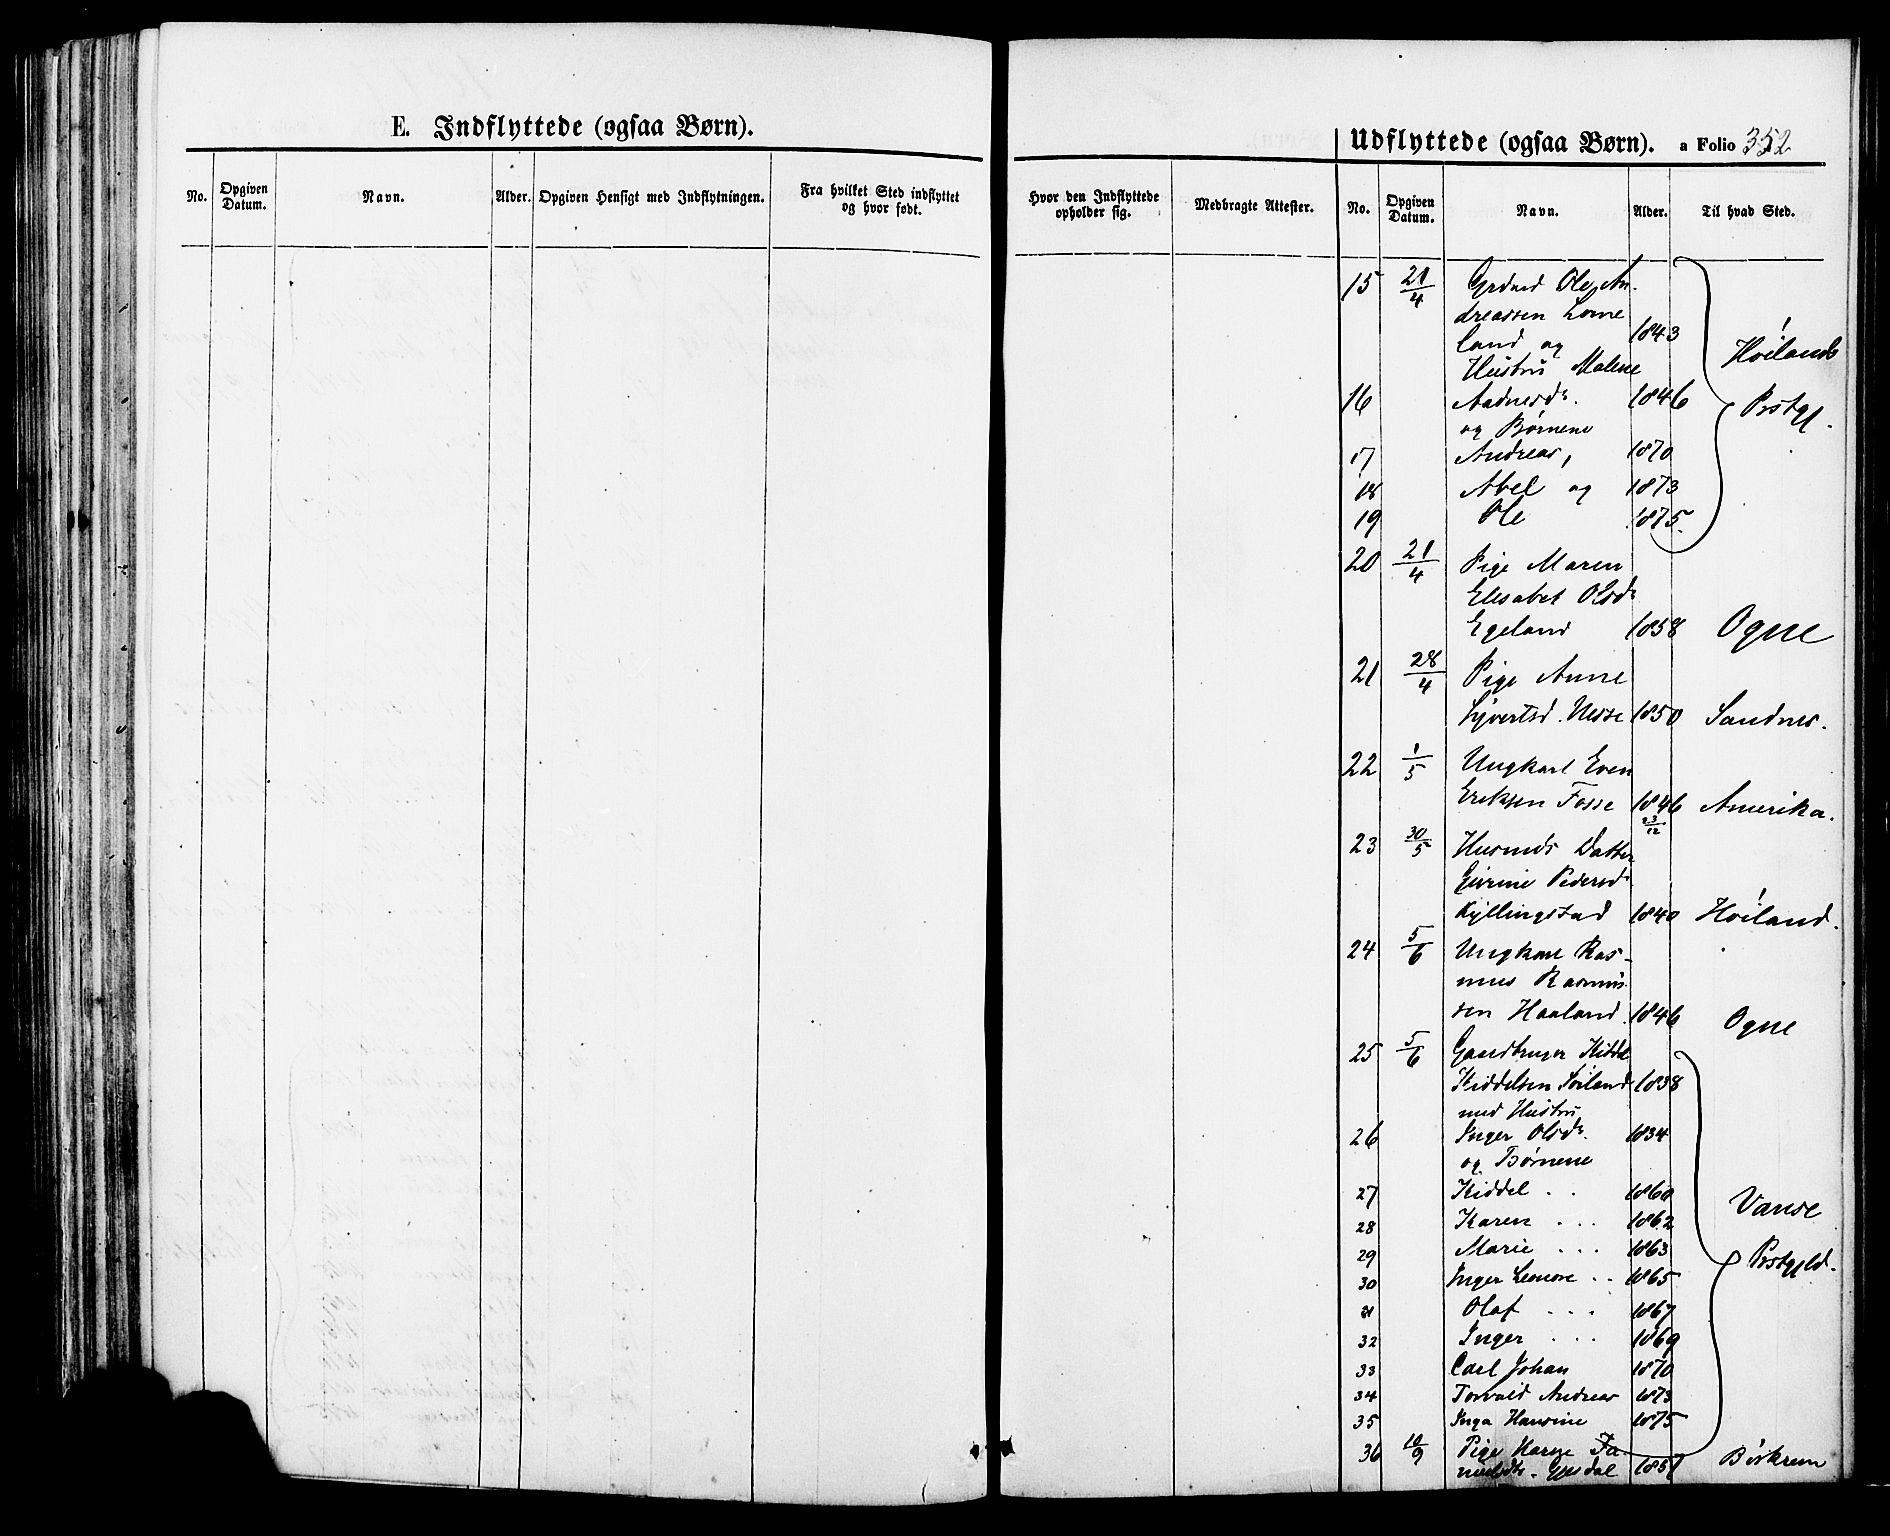 E. Indflyttede (ogsaa Børn).
No. Opgiven Datum. Navn. Alder. Opgiven Hensigt med Indflytningen. Fra hvilket Sted indflyttet og hvor født.
Udflyttede (ogsaa Børn). a Folio 352
Hvor den Indflyttede opholder sig. Medbragte Attester. No. Opgiven Datum. Navn. Alder. Til hvad Sted.
15 21/4 Grdmd Ole An-
dreassen Lome
land og 1843 Høilands
Hustru Malene
16 Aadnesdr. 1846 Prstgj.
og Børnene
17 Andreas, 1870
18 Abel og 1873
19 Ole 1875.
20 21/4 Pige Maren
Elesabet Olsdr
Egeland 1858 Ogne
21 28/4 Pige Anne
Sjvertsd. Nesse 1850 Sandnes.
22 1/5 Ungkarl Even
Eriksen Fosse 1846 Amerika.
23/12
23 30/5 Husmds Datter
Gurine Pedersdr
Kyllingstad 1840 Høiland.
24 5/6 Ungkarl Ras-
mus Rasmus
sen Haaland 1846 Ogne
25 5/6 Gaardbruger Kiddel
Kiddelsen Soiland 1838
med Hustru
26 Inger Olsdr. 1834
og Børnene
27 Kiddel . . 1860 Vanse
28 Karen . . . 1862
29 Marie . . . 1863 Prstgjld.
30 Inger Lenore . . 1865
31 Olaf . . . 1867
32 Inger . . . 1869
33 Carl Johan 1870
34 Torvald Andreas 1873
35 Inga Hansine 1875
36 10/9 Pige Karen Ta-
1851 Børkrem